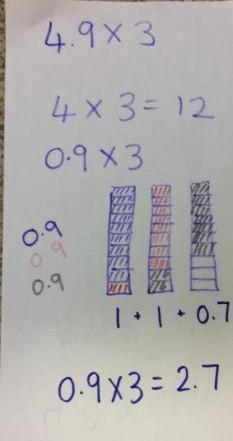 4.9 × 3
4 × 3 = 12
0.9 × 3
0.9
0.9
0.9
1 + 1 + 0.7
0.9 × 3 = 2.7